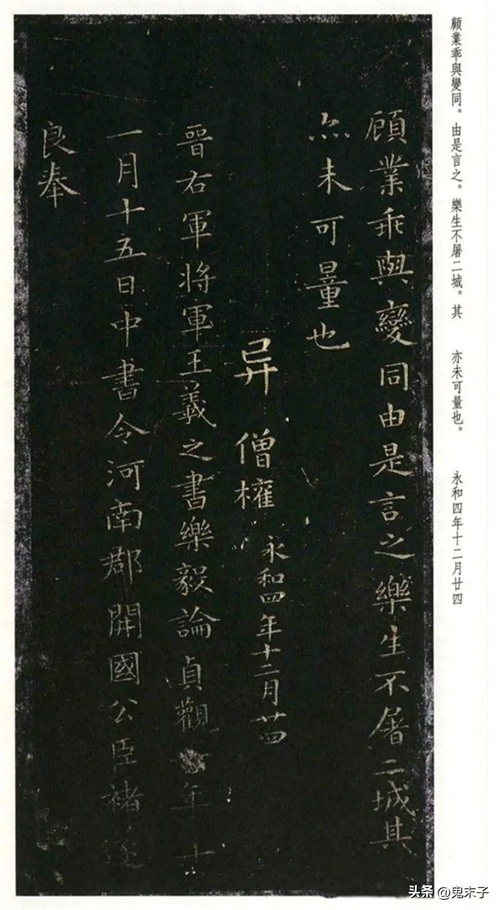 顧業乖與變同。由是言之。樂生不屠二城。其 亦未可量也。 永和四年十二月廿四
顧業乖與變同由是言之樂生不屠二城其
亦未可量也
异 僧權 永和四年十二月廿四
晉右軍將軍王羲之書樂毅論貞觀年十
一月十五日中書令河南郡開國公臣褚遂
良奉
头条 @鬼末子